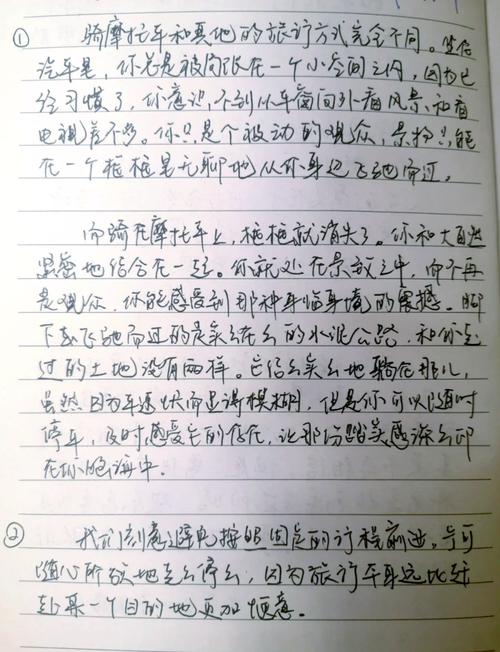 ① 骑摩托车和其他的旅行方式完全不同。坐在
汽车里，你总是被局限在一个小空间之内，因为已
经习惯了，你意识不到从车窗向外看风景和看
电视差不多。你只是个被动的观众，景物只能
在一个框框里无聊地从你身边飞驰而过。
而骑在摩托车上，框框就消失了。你和大自然
紧密地结合在一起。你就处在景致之中，而不再
是观众，你能感受到那种身临其境的震撼。脚
下飞驰而过的是实实在在的水泥公路，和你走
过的土地没有两样。它结结实实地躺在那儿，
虽然因为车速快而显得模糊，但是你可以随时
停车，及时感受它的存在，让那份踏实感深深印
在你脑海中。
② 我们刻意避免按照固定的行程前进，宁可
随心所欲地走走停停，因为旅行本身远比赶
赴某一个目的地更加惬意。